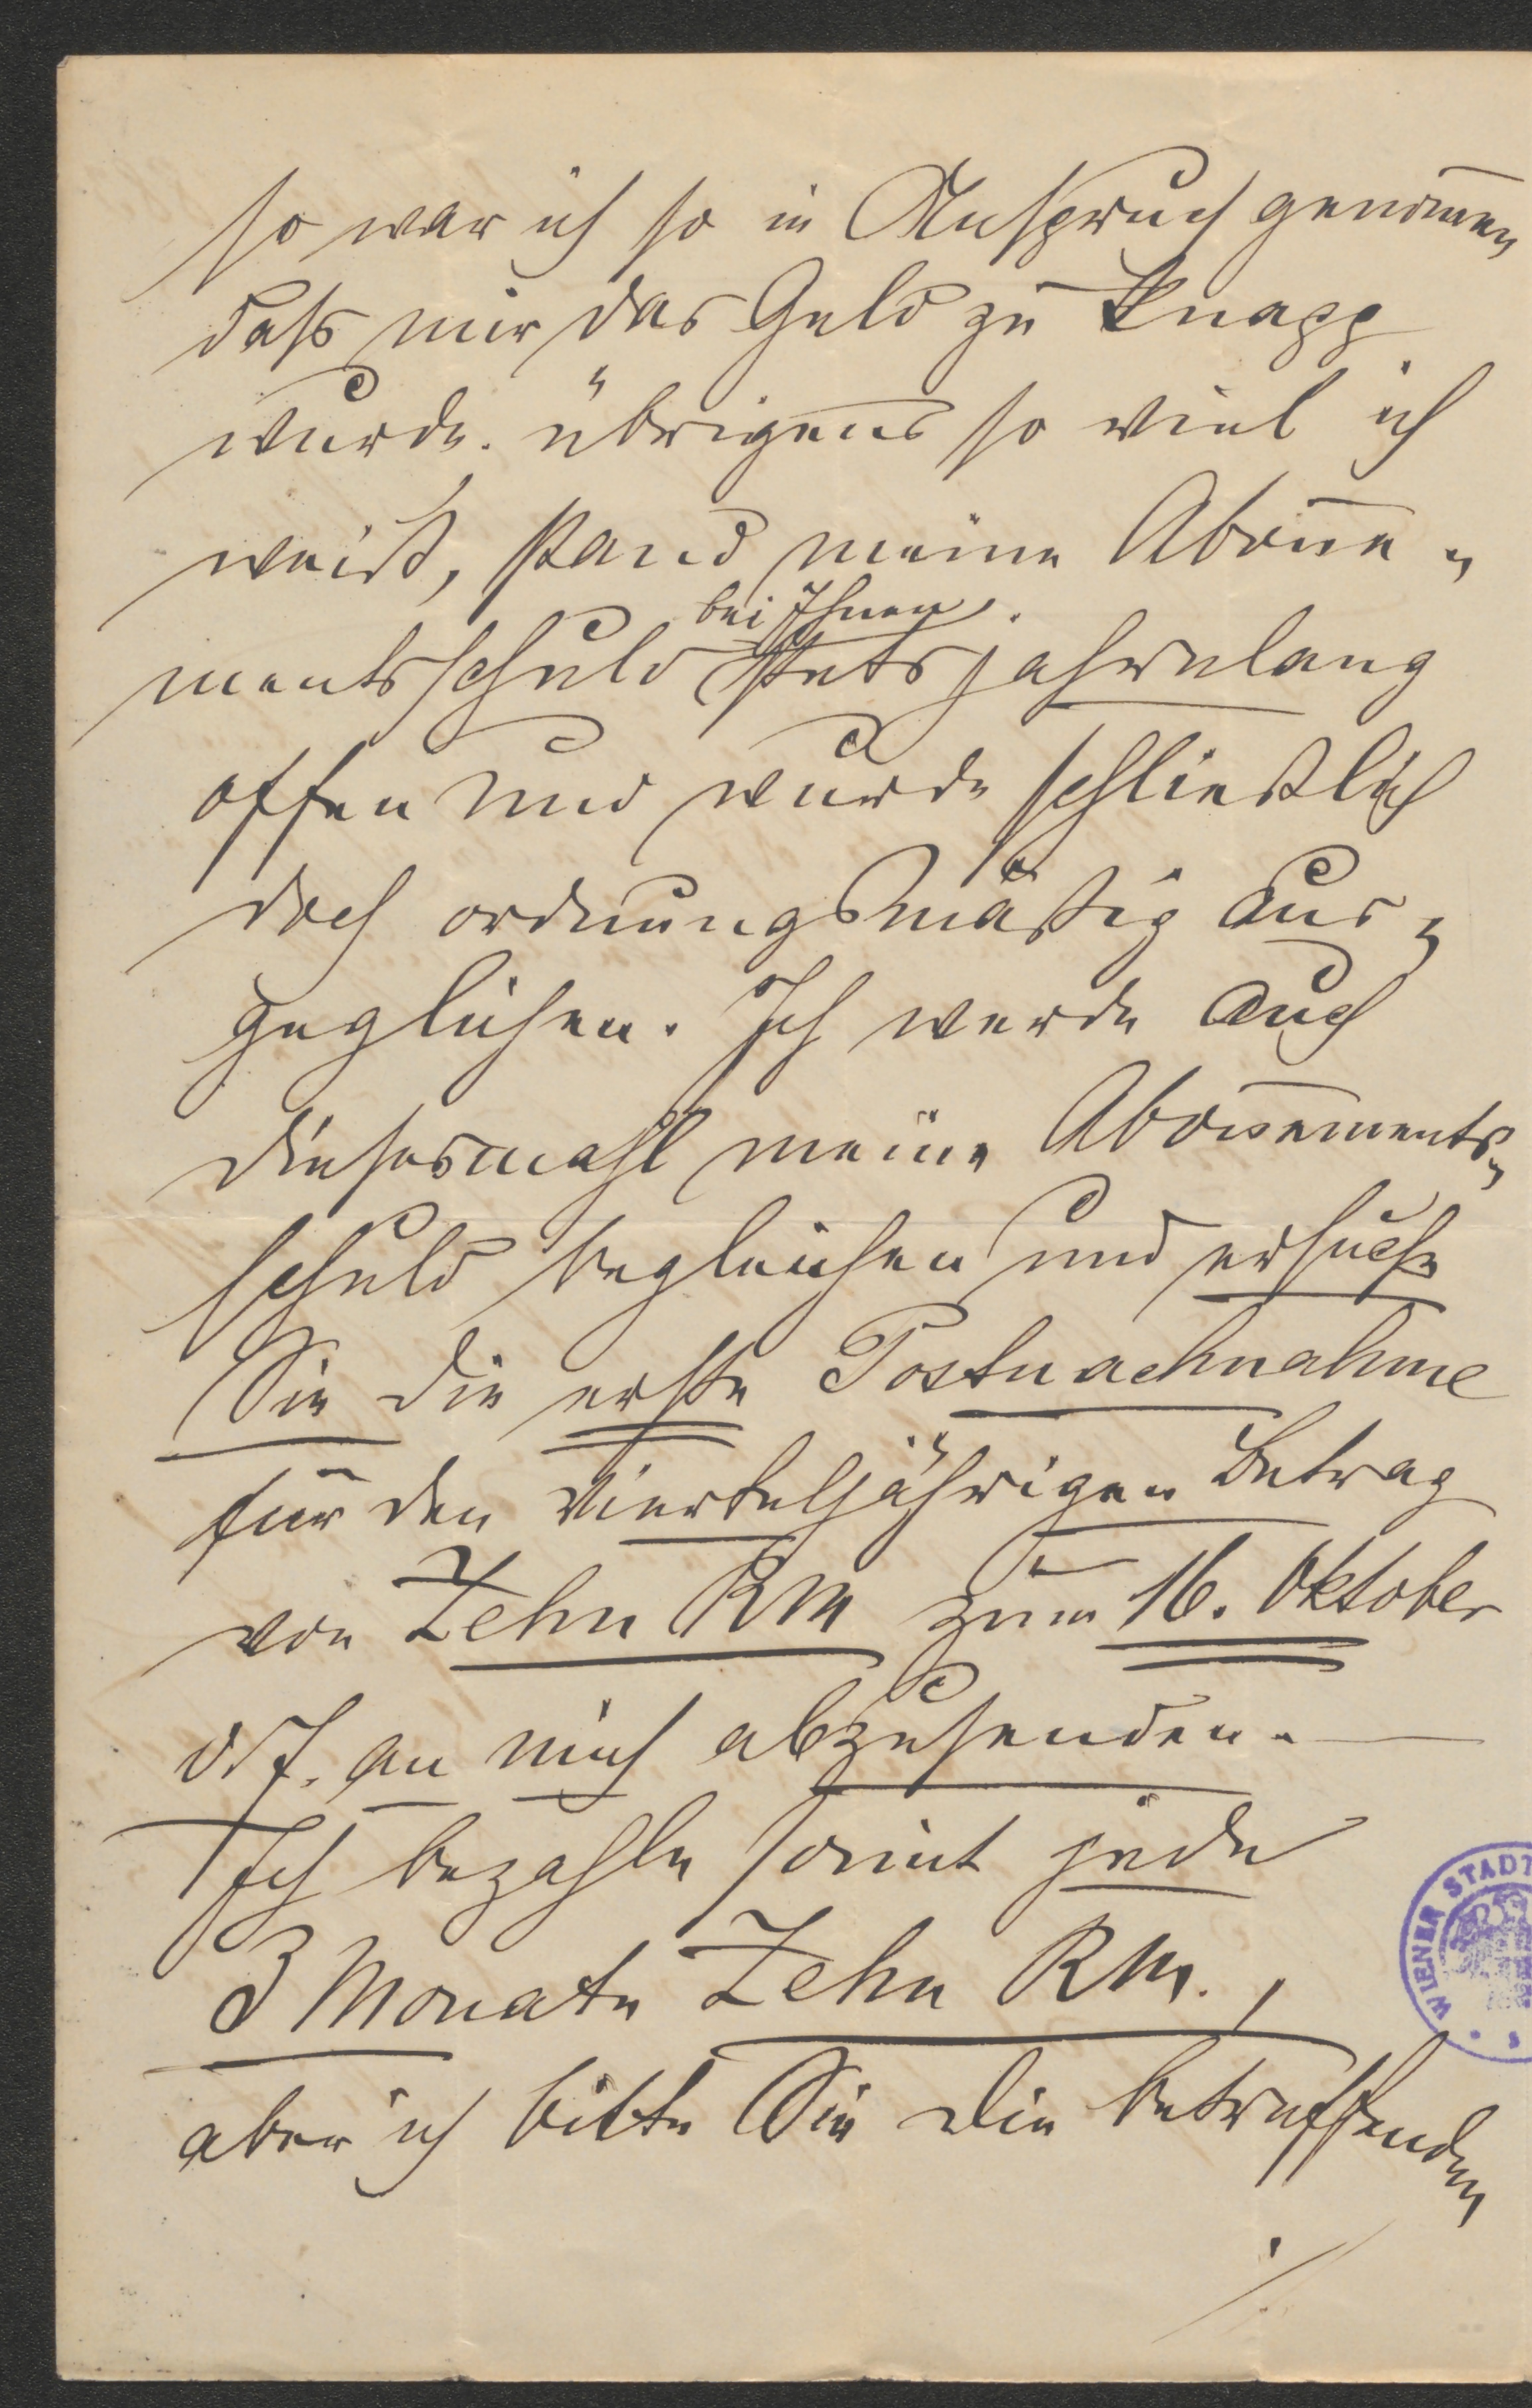 so war ich so in Anspruch genom̅en
daß mir das Geld zu knapp
wurde. übrigens so viel ich
weiß, stand meine Abon̅e-
bei Ihnen
mentsschuld stets jahrelang
offen und wurde schließlich
doch ordnungsmäßig aus-
geglichen. Ich werde auch
diesesmahl meine Abon̅ements-
schuld begleichen und ersuche
Sie die erste Postnachnahme
für den vierteljährigen Betrag
von Zehn RM zum 16. Oktober
d J. an mich abzusenden. —
Ich bezahle somit jede
3 Monate Zehn RM.,
aber ich bitte Sie die betreffenden
./.
WIENER STADT